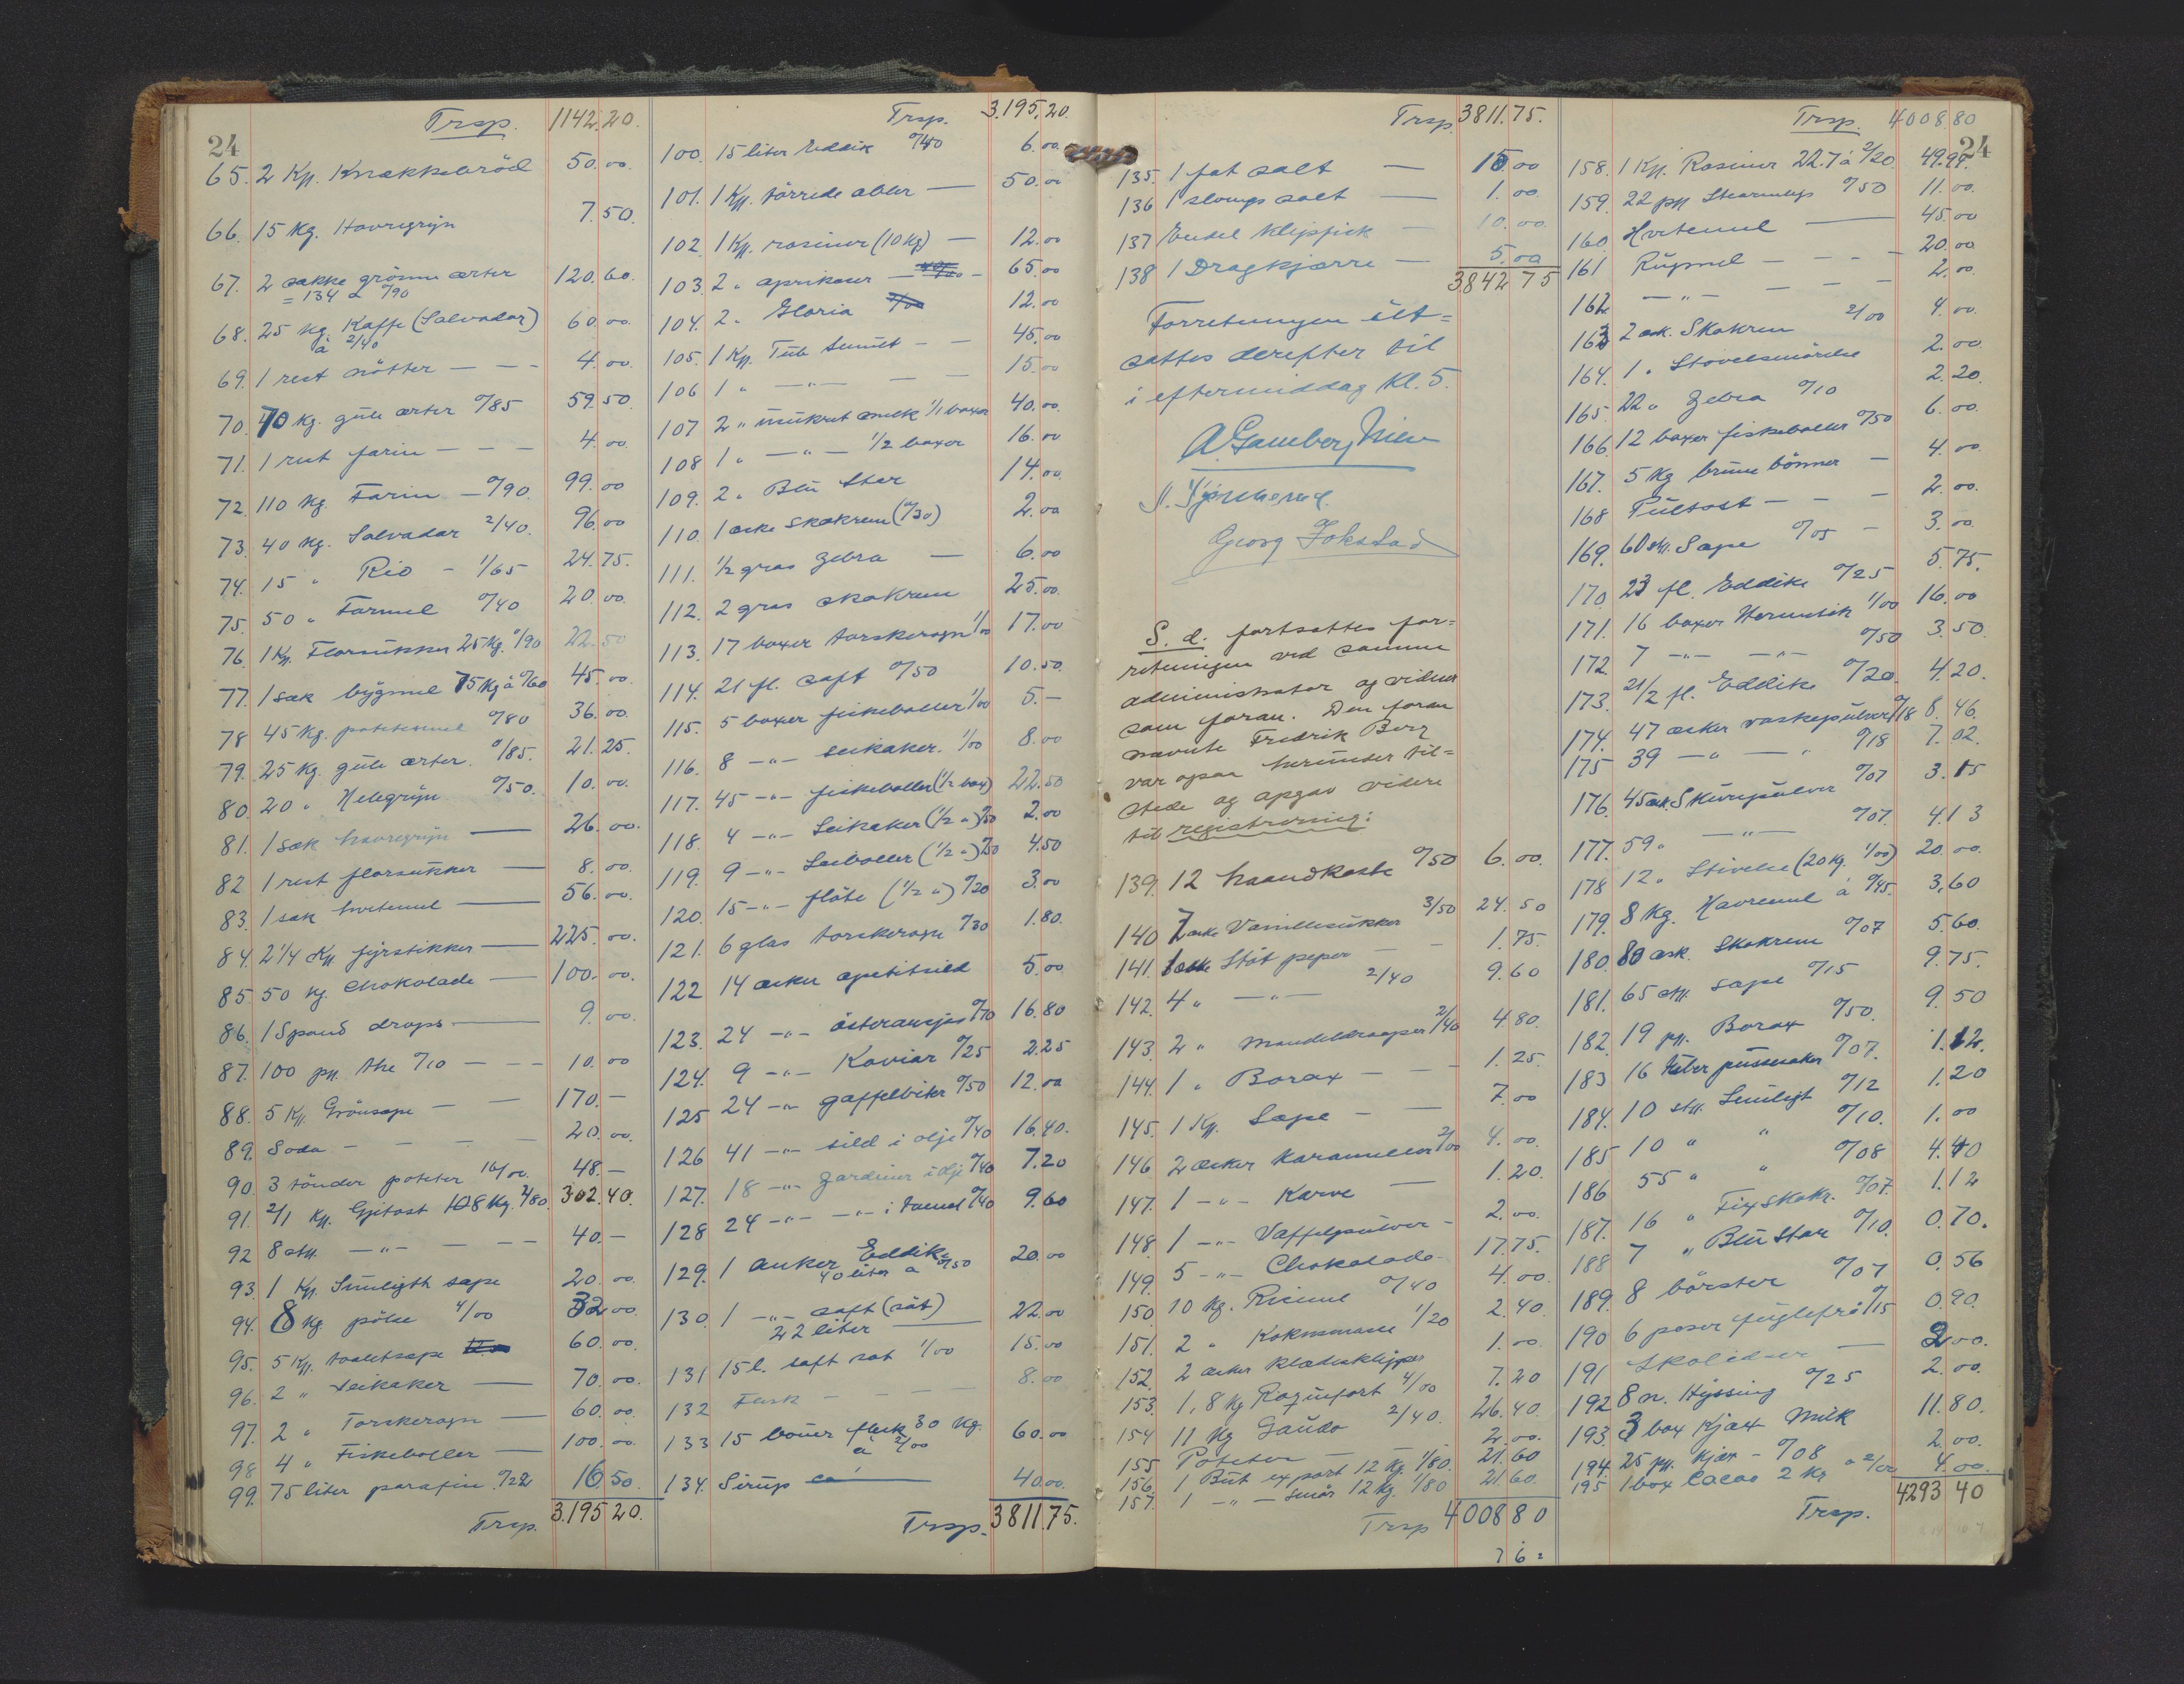 24
Trsp. 1142.20.
65. 2 Kp. Knækkebröd 50.00.
66. 15 Kg. Havregryn 7.50.
67. 2 sække grönne ærter 120.60.
= 134 a 0/90
68. 25 Kg. Kaffe (Salvador) 60.00.
à 2/40
69. 1 rest nötter — - - 4.00.
70. 70 Kg. gule ærter 0/85 59.50
71. 1 rest farin — - - 4.00.
72. 110 Kg. Farin — 0/90. 99.00
73. 40 Kg. Salvador 2/40. 96.00
74. 15 " Rio - 1/65 24.75.
75. 50 " Formel 0/40 20.00.
76. 1 Kp. Florsukker 25 Kg. 0/90 22.50
77. 1 sæk bygmel 75 Kg à 0/60 45.00.
78 45 Kg. potetesmel 0/80 36.00.
79. 25 Kg. gule ærter. 0/85. 21.25.
80. 20 " Helegryn 0/50. 10.00.
81. 1 sæk havregryn — 26.00.
82 1 rest florsukker — 8.00.
83. 1 sæk hvetemel — 56.00.
84. 2 1/4 Kp. fyrstikker — 225.00.
85 50 Kg. Chokolade — 100.00.
86. 1 Spand drops. — 9.00.
87. 100 pk. the 0/10 — - - 10.00
88. 5 Kp. Grönsape — — 170.—
89. Soda - - - - 20.00.
90. 3 tönder poteter 16/00. 48.—
91. 2/1 Kp. Gjetost 108 Kg. 2/80. 302.40.
92 8 stk. —"— - - - 40.—
93. 1 Kp. Sunligth sape 20.00.
94. 8 Kg pölse 4/00 32.00.
95. 5 Kp. toaletsape 60.00.
96. 2 " Seikaker — 70.00.
97. 2 " Torskerogn — 60.00.
98 4 " Fiskeboller — 100.00.
99. 75 liter parafin 0/22 16.50.
Trsp. 3.195.20.
Trsp. 3.195.20.
100. 15 liter Eddik 0/40 6.00.
101. 1 Kp. törrede abler — 50.00
102. 1 Kp. rosiner (10 Kg) — 12.00
103. 2 " aprikoser — 65.00
104. 2. Gloria 12.00
105. 1 Kp. Tub - - 45.00
106 1 " —"— — — 15.00
107 2 " usukret melk 1/1 boxer 40.00.
108 1 " —"— 1/2 boxer 16.00
109. 2. Blu Star 14.00
110. 1 æske skokrem (0/30) 2.00
111. 1/2 gros Zebra — 6.00
112. 2 gros skokrem 25.00.
113. 17 boxer torskerogn 1/00 17.00
114. 21 fl. saft 0/50 10.50.
115. 5 boxer fiskeboller 1/00 5.—
116. 8 —"— seikaker. 1/00 8.00
117. 45 —"— fiskeboller (1/2 box) 22.50
118. 4 —"— Seikaker (1/2 ") 0/50 2.00
119. 9 —"— Seiboller (1/2 ") 0/50 4.50
120. 15 —"— flöte (1/2 ") 0/20 3.00
121. 6 glas torskerogn 0/30 1.80.
122 14 æsker apetitsild 5.00
123. 24 —"— österansjos 0/70 16.80
124. 9 —"— Kaviar 0/25 2.25
125 24 —"— gaffelbiter 0/50 12.00
126 41 —"— sild i olje 0/40 16.40.
127. 18 —"— sardiner i olje 0/40 7.20
128 24 —"— —"— i tomat 0/40 9.60
129. 1 anker Eddik 20.00
40 liter a 0/50
130. 1 —"— saft (söt) 22.00
22 liter —
131 15 l. saft söt 1/00 15.00
132 Flesk - - - 8.00
133 15 bönner flesk 30 Kg. 60.00
à 2/00
134. Sirup — 40.00.
Trsp. 3811.75.
Trsp. 3811.75.
135. 1 fat salt — 15.00
136 1 slumps salt — 1.00.
137 Endel Klipfisk - 10.00.
138 1 Dragkjærre - 5.00
3842 75
Forretningen ut=
sattes derefter til
i eftermiddag Kl. 5.
Georg Jokstad
S. d. fortsattes for=
retningen ved samme
administrator og vidner
som foran. Den foran
nævnte Fredrik Berg
var ogsaa herunder til=
stede og opgav videre
til registrering:
139. 12 haandkoste 0/50 6.00.
140 7 æske Vanillesukker 3/50 24.50
141. 1 æske Stöt peper — - 1.75.
142. 4 " —"— 2/40 9.60
143. 2 " Mandeldraaper 2/40 4.80.
144. 1 " Borax — - - 1.25.
145. 1 Kp. Sape - — 7.00
146 2 æsker Karameller 2/00 4.00.
147. 1 —"— Karve — 1.20.
148. 1 —"— Vaffelpulver - 2.00.
149. 5 —"— Chokolade- 17.75.
150. 10 Kg. Rismel 0/40 4.00.
151. 2 " Kokosmasse 1/20 2.40.
152. 2 æsker Klædesklyper 1.00.
153. 1,8 Kg Roqufort 4/00 7.20
154 11 Kg Gauda 2/40. 26.40.
155 Poteter 2.00.
156. 1 But export 12 Kg. 1/80. 21.60
157. 1 —"— Smör 12 Kg. 1/80 21.60.
Trsp 4008 80
24
Trsp. 4008.80
158. 1 Kp. Rosiner 22.7 à 2/20. 49.94.
159. 22 pk Stearinlys 0/50 11.00.
160. Hvetemel — 45.00
161 Rugmel - - - - 20.00
162 —"— — - - 2.00.
163 2 æsk. Skokrem 2/00 4.00.
164. 1 " Stövelsmörelse 2.00.
165. 22 " Zebra 0/10 2.20.
166. 12 boxer fiskeboller 0/50 6.00.
167. 5 Kg brune bönner - 4.00.
168 Pultost - - - 2.00.
169. 60 stk. Sape 0/05 - 3.00.
170. 23 fl. Eddike 0/25 5.75.
171. 16 boxer Hermetik 1/00 16.00
172. 7 —"— —"— 0/50 3.50.
173. 21/2 fl. Eddike 0/20. 4.20.
174. 47 æsker vaskepulver 0/18 8.46.
175 39 —"— — " 0/18 7.02.
176. 45 æsk. Skurepulver 0/07 3.15
177. 59 " —"— 0/07. 4.13
178 12 " Stivelse (20 Kg. 1/00) 20.00.
179. 8 Kg. Havremel à 0/45. 3.60
180. 80 æsk. Skokrem 0/07 5.60.
181. 65 stk. sape 0/15 9.75.
182. 19 pk. Borax 0/50. 9.50
183 16 pussesaker 0/07. 1.12.
184. 10 stk. Sunligt 0/12 1.20
185 10 " " 0/10. 1.00
186 55 " " 0/08 4.40
187. 16 " Fixskokr. 0/07. 1.12
188 7 " Blu Star 0/10. 0.70.
189. 8 börster 0/07 0.56
190 6 poser fuglefrö 0/15 0.90.
191 Skolidser — 2.00.
192 8 n. Hyssing 0/25 2.00.
193. 3 box Kjæx Melk 11.80.
194. 25 pk. Kjæx - 0/08 2.00.
195 1 box Cacao 2 Kg a 2/00 4.00.
4293 40
Trsp.